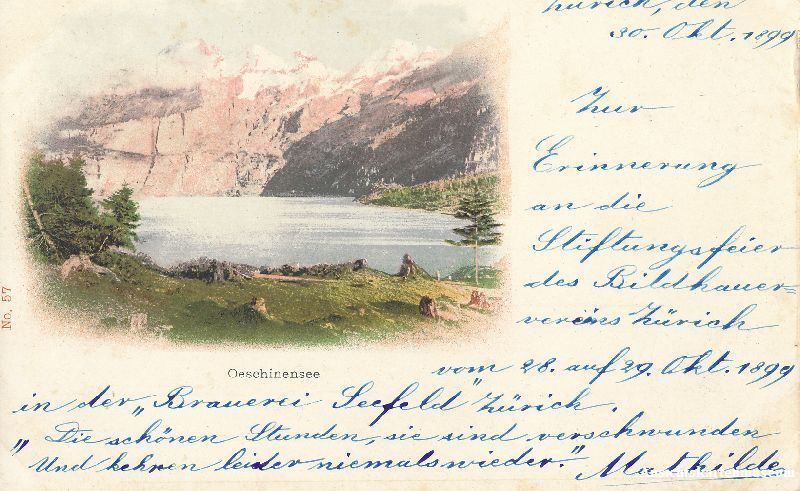 Zürich, den
30. Okt. 1899
Zur
Erinnerung
an die
Stiftungsfeier
des Bildhauer=
vereins Zürich
No. 57
Oeschinensee
vom 28. auf 29. Okt. 1899
in der „Brauerei Seefeld" Zürich.
„Die schönen Stunden, sie sind verschwunden
Und kehren leider niemals wieder." Mathilde